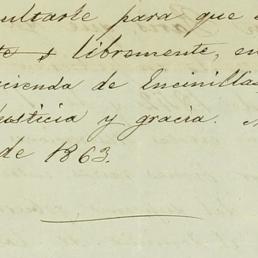 ultarte para que
te y libremente, en
cienda de Encinillas
Justicia y gracia.
de 1863.